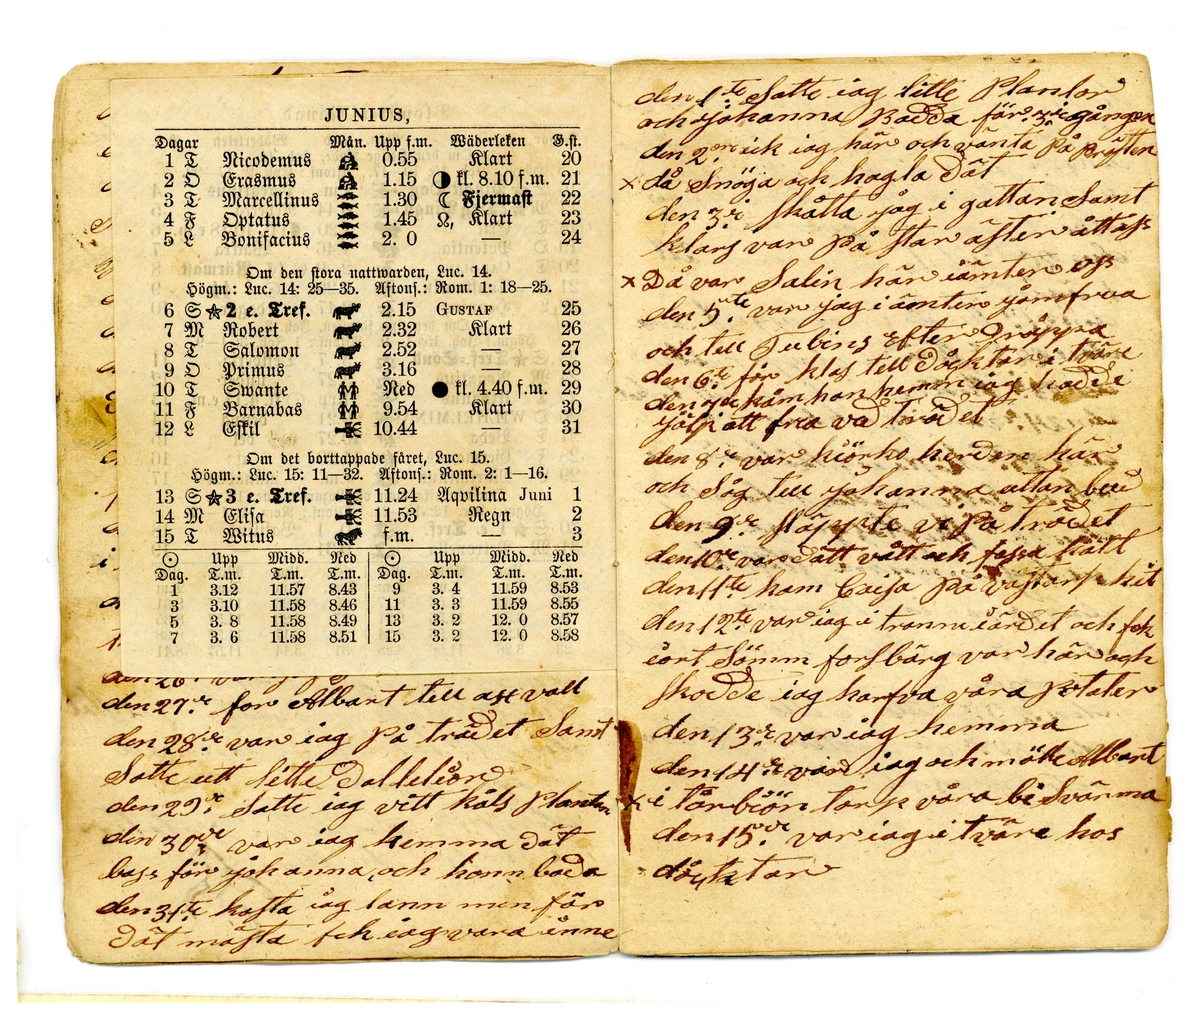 JUNIUS,
Dagar Mån. Upp f.m. Wäderleken G.st.
1 T Nicodemus 0.55 Klart 20
2 O Erasmus 1.15 kl. 8.10 f.m. 21
3 T Marcellinus 1.30 ☾ Fjermast 22
4 F Optatus 1.45 ☊, Klart 23
5 L Bonifacius 2. 0 — 24
Om den stora nattwarden, Luc. 14.
Högm.: Luc. 14: 25—35. Aftons.: Rom. 1: 18—25.
6 S ☆ 2 e. Tref. 2.15 GUSTAF 25
7 M Robert 2.32 Klart 26
8 T Salomon 2.52 — 27
9 O Primus 3.16 — 28
10 T Swante Ned ● kl. 4.40 f.m. 29
11 F Barnabas 9.54 Klart 30
12 L Eskil 10.44 — 31
Om det borttappade fåret, Luc. 15.
Högm.: Luc. 15: 11—32. Aftons.: Rom. 2: 1—16.
13 S ☆ 3 e. Tref. 11.24 Aqvilina Juni 1
14 M Elisa 11.53 Regn 2
15 T Witus f.m. — 3
☉ Upp Midd. Ned ☉ Upp Midd. Ned
Dag. T.m. T.m. T.m. Dag. T.m. T.m. T.m.
1 3.12 11.57 8.43 9 3. 4 11.59 8.53
3 3.10 11.58 8.46 11 3. 3 11.59 8.55
5 3. 8 11.58 8.49 13 3. 2 12. 0 8.57
7 3. 6 11.58 8.51 15 3. 2 12. 0 8.58
den 27.de for Albart till vall
den 28.de var iag på trädet Samt
Satte ett litte
den 29.r Satte iag vitt kåls Planter
den 30de var iag hemma dät
bass för johanna och honn bada
den 31te kasta iag lann men för
dät mästa fck iag vara inne
den 1.te Satte iag litte Plantor
och johanna Badda för gången
den 2.re ick iag här och vänta på prästen
x då Snöga och hagla dät
den 3.i skåtta jag i gattan Samt
klars var på star äfter åttass
x Då var Salin här iämter oss
den 5.te var jag i ämter jömfrua
och till Tubins efter Dräppa
den 6.e för klas till Dåcktar i träre
den 7de kåm han hemm iag hadde
jölp att frea va trädet
den 8.r var hiörko herden här
och Såg till johanna uttan bud
den 9.de släppte vi på trädet
den 10.de var dätt vått och fassa kalt
den 11te kam Caisa på hit
den 12.te var iag i tranniärdet och fck
iort Sömm forsbärg var här och
skodde iag harfva våra Potater
den 13.de var iag hemma
den 14.de var iag och mötte Albart
x i Tårbiön tarp våra bi Svärma
den 15.de var iag i tväre hos
dåcktar